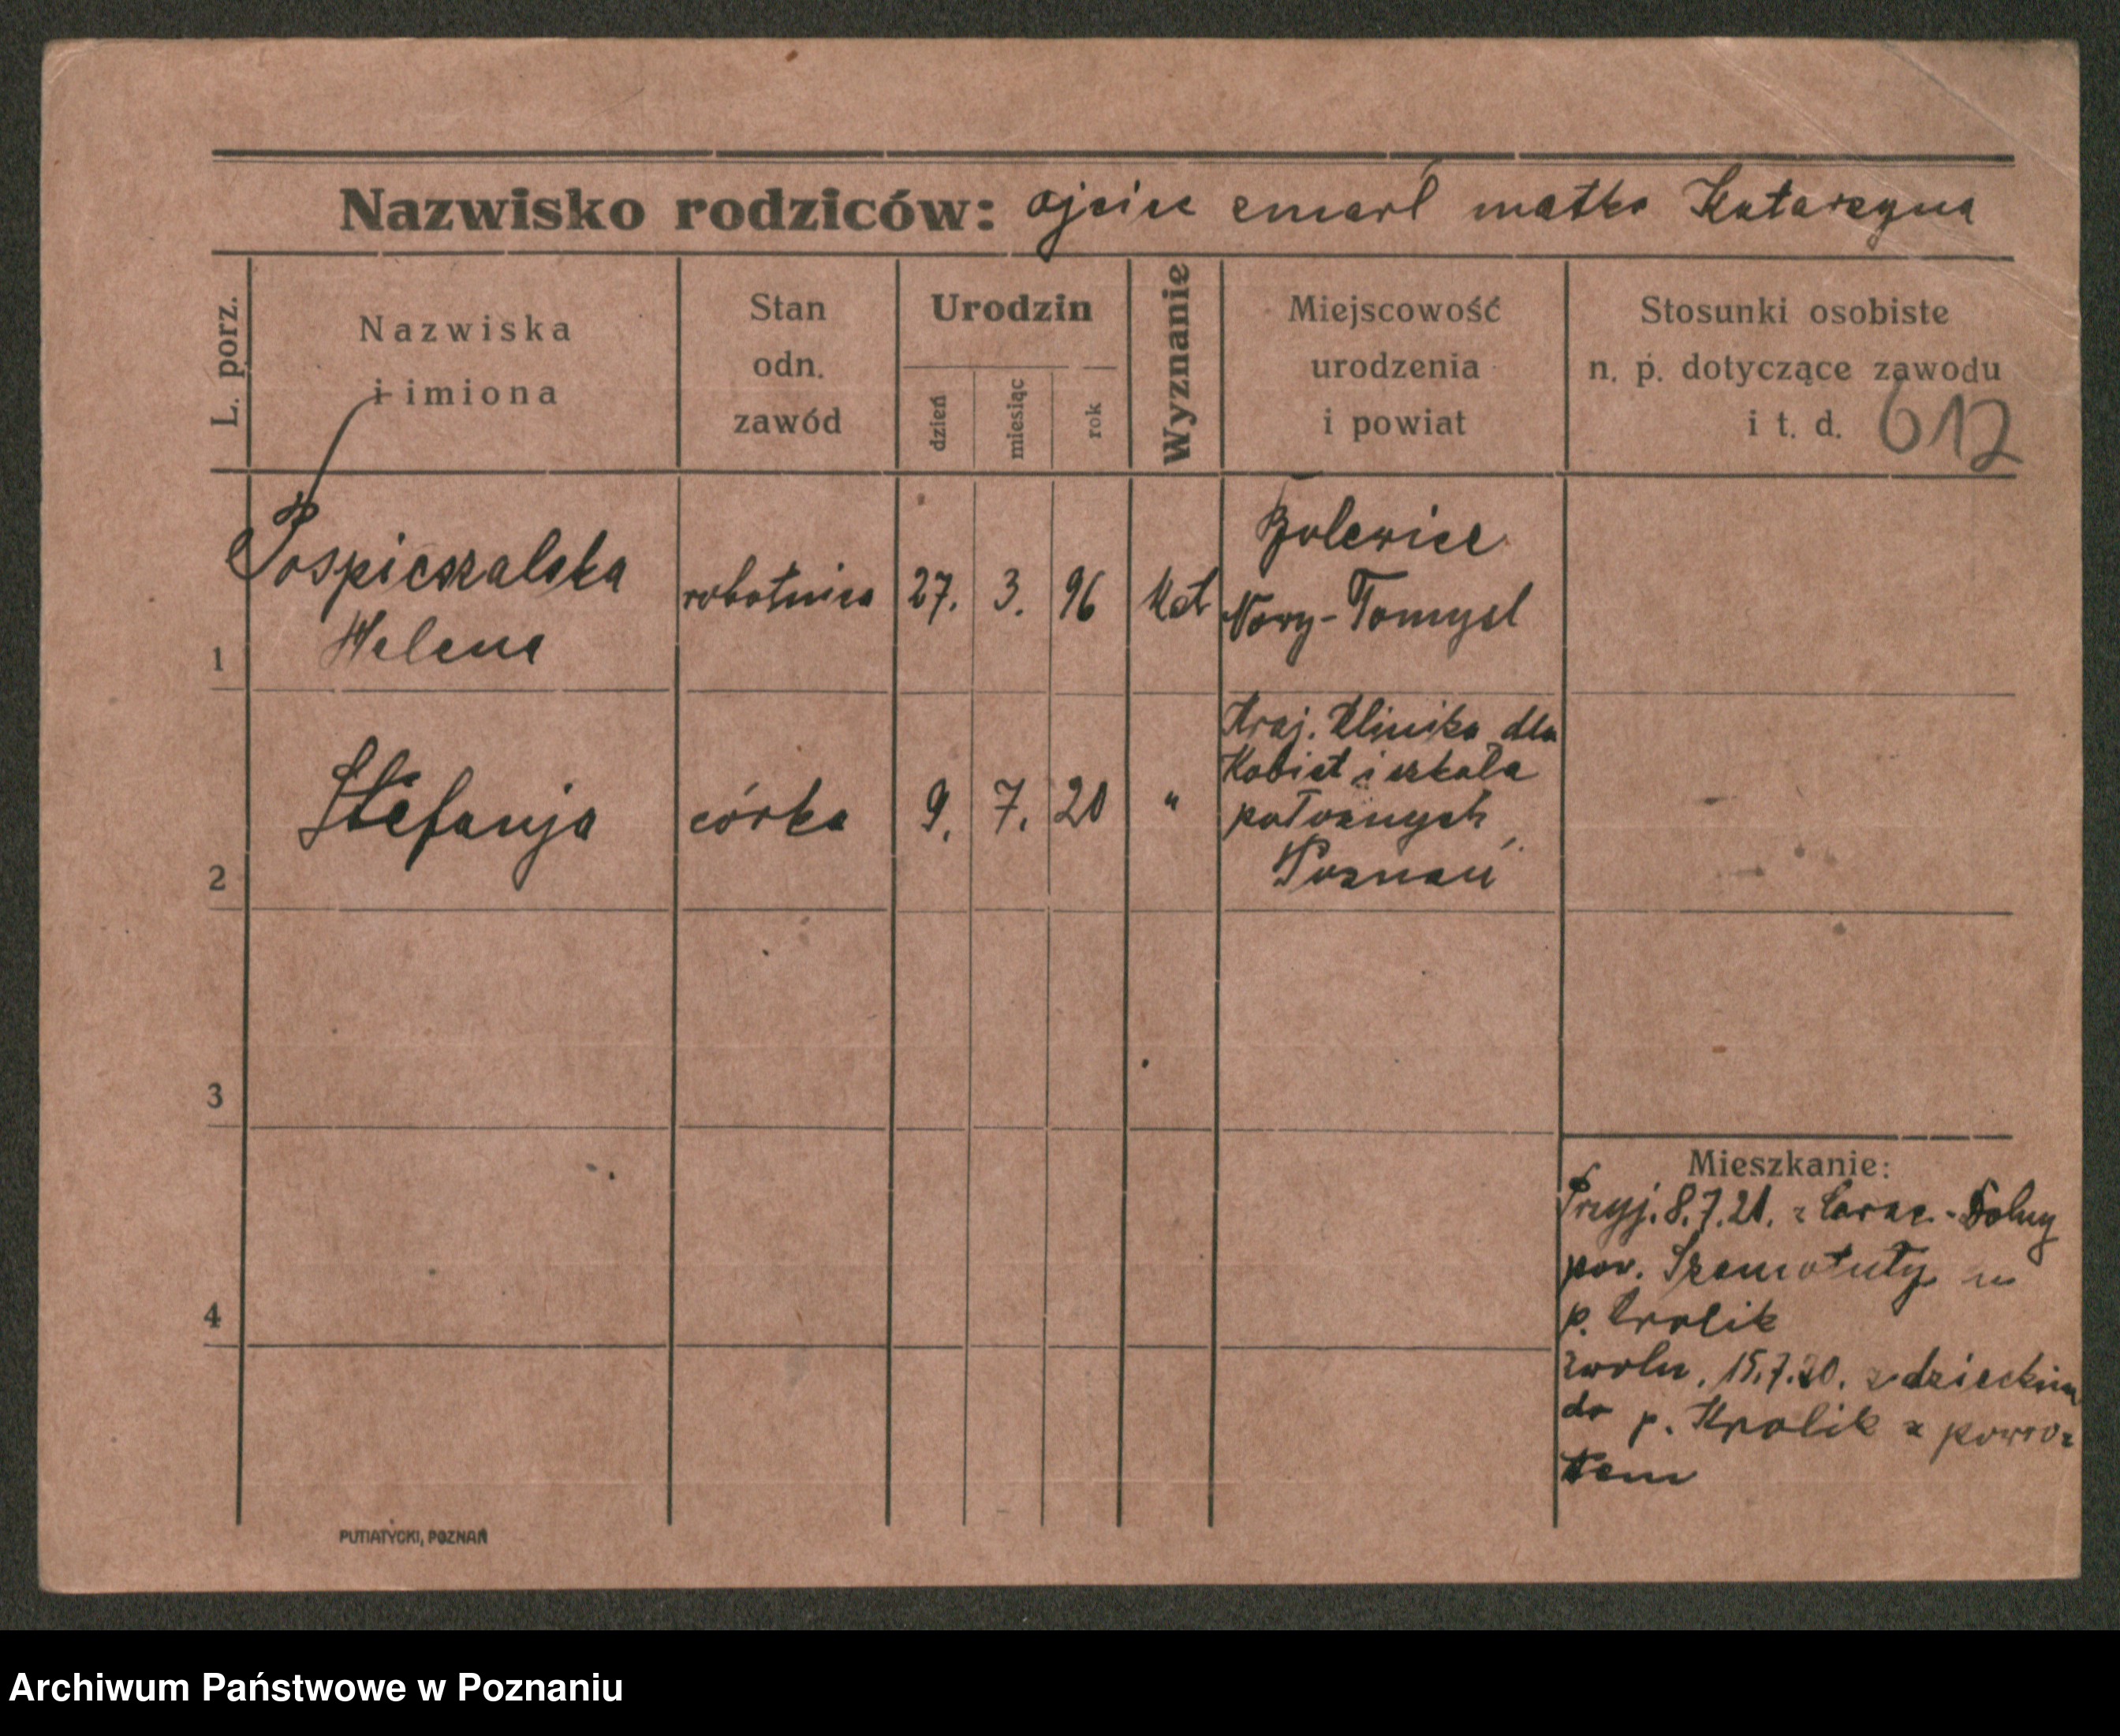 Nazwisko rodziców: ojciec zmarł matka Katarzyna
L. porz.
Nazwiska
i imiona
Stan
odn.
zawód
Urodzin
dzień
miesiąc
rok
Wyznanie
Miejscowość
urodzenia
i powiat
Stosunki osobiste
n. p. dotyczące zawodu
i t. d. 612
Pospieszalska
Helena
robotnica 27. 3. 96 Kat
Bolewice
Nowy-Tomysl
1
Stefanja
córka 9. 7. 20 "
Kraj. Klinika dla
Kobiet i szkoła
położnych
Poznań
2
3
4
Mieszkanie:
Przyj. 8.7.20. z Dolny
pow. Szamotuły
p. Krolik
zwoln. 15.7.20. z dzieckiem
do p. Krolik z powro-
tem
PUTIATYCKI, POZNAŃ
Archiwum Państwowe w Poznaniu